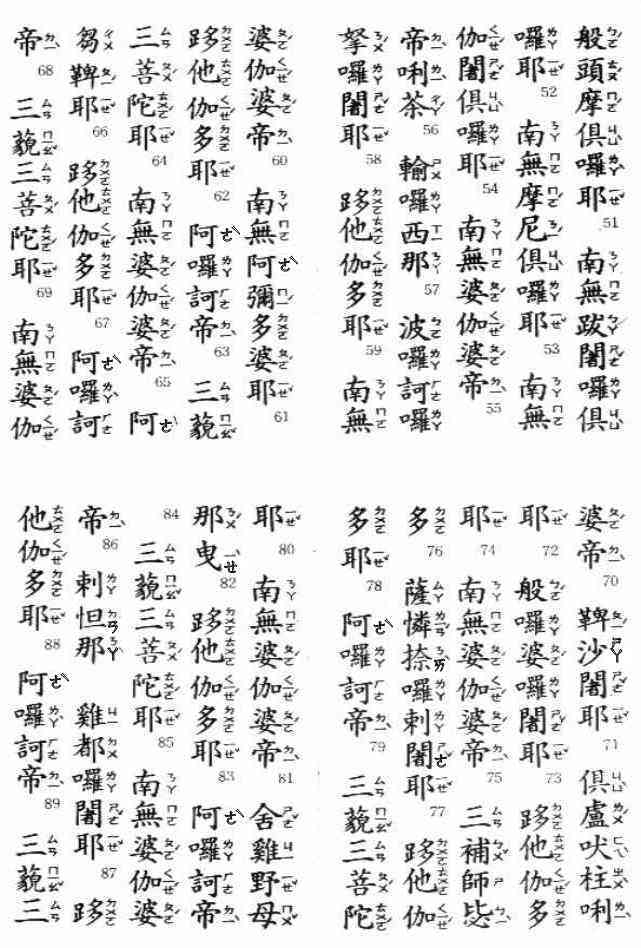 般頭摩俱囉耶 51 南無跋闍囉俱
囉耶 52 南無摩尼俱囉耶 53 南無
伽闍俱囉耶 54 南無婆伽婆帝 55
帝唎茶 56 輸囉西那 57 波囉訶囉
拏囉闍耶 58 跢他伽多耶 59 南無
婆伽婆帝 60 南無阿彌多婆耶 61
跢他伽多耶 62 阿囉訶帝 63 三藐
三菩陀耶 64 南無婆伽婆帝 65 阿
芻鞞耶 66 跢他伽多耶 67 阿囉訶
帝 68 三藐三菩陀耶 69 南無婆伽
婆帝 70 鞞沙闍耶 71 俱盧吠柱唎
耶 72 般囉婆囉闍耶 73 跢他伽多
耶 74 南無婆伽婆帝 75 三補師毖
多 76 薩憐捺囉剌闍耶 77 跢他伽
多耶 78 阿囉訶帝 79 三藐三菩陀
耶 80 南無婆伽婆帝 81 舍雞野母
那曳 82 跢他伽多耶 83 阿囉訶帝
84 三藐三菩陀耶 85 南無婆伽婆
帝 86 剌怛那 雞都囉闍耶 87 跢
他伽多耶 88 阿囉訶帝 89 三藐三